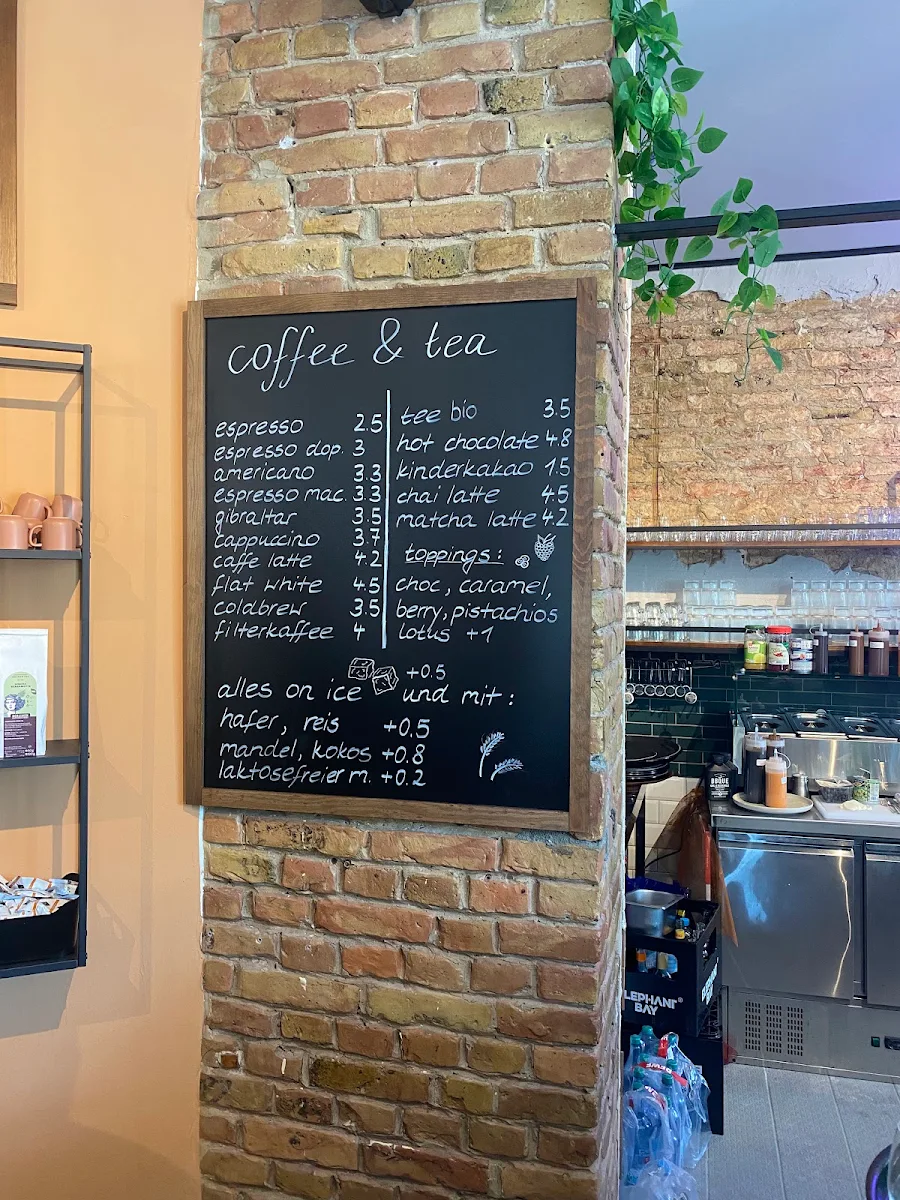 coffee & tea
espresso 2.5
espresso dop. 3
americano 3.3
espresso mac. 3.3
gibraltar 3.5
cappuccino 3.7
caffe latte 4.2
flat white 4.5
coldbrew 3.5
filterkaffee 4
tee bio 3.5
hot chocolate 4.8
kinderkakao 1.5
chai latte 4.5
matcha latte 4.2
toppings:
choc, caramel,
berry, pistachios
lotus +1
+0.5
alles on ice und mit:
hafer, reis +0.5
mandel, kokos +0.8
laktosefreier m. +0.2
ELEPHANT
BAY